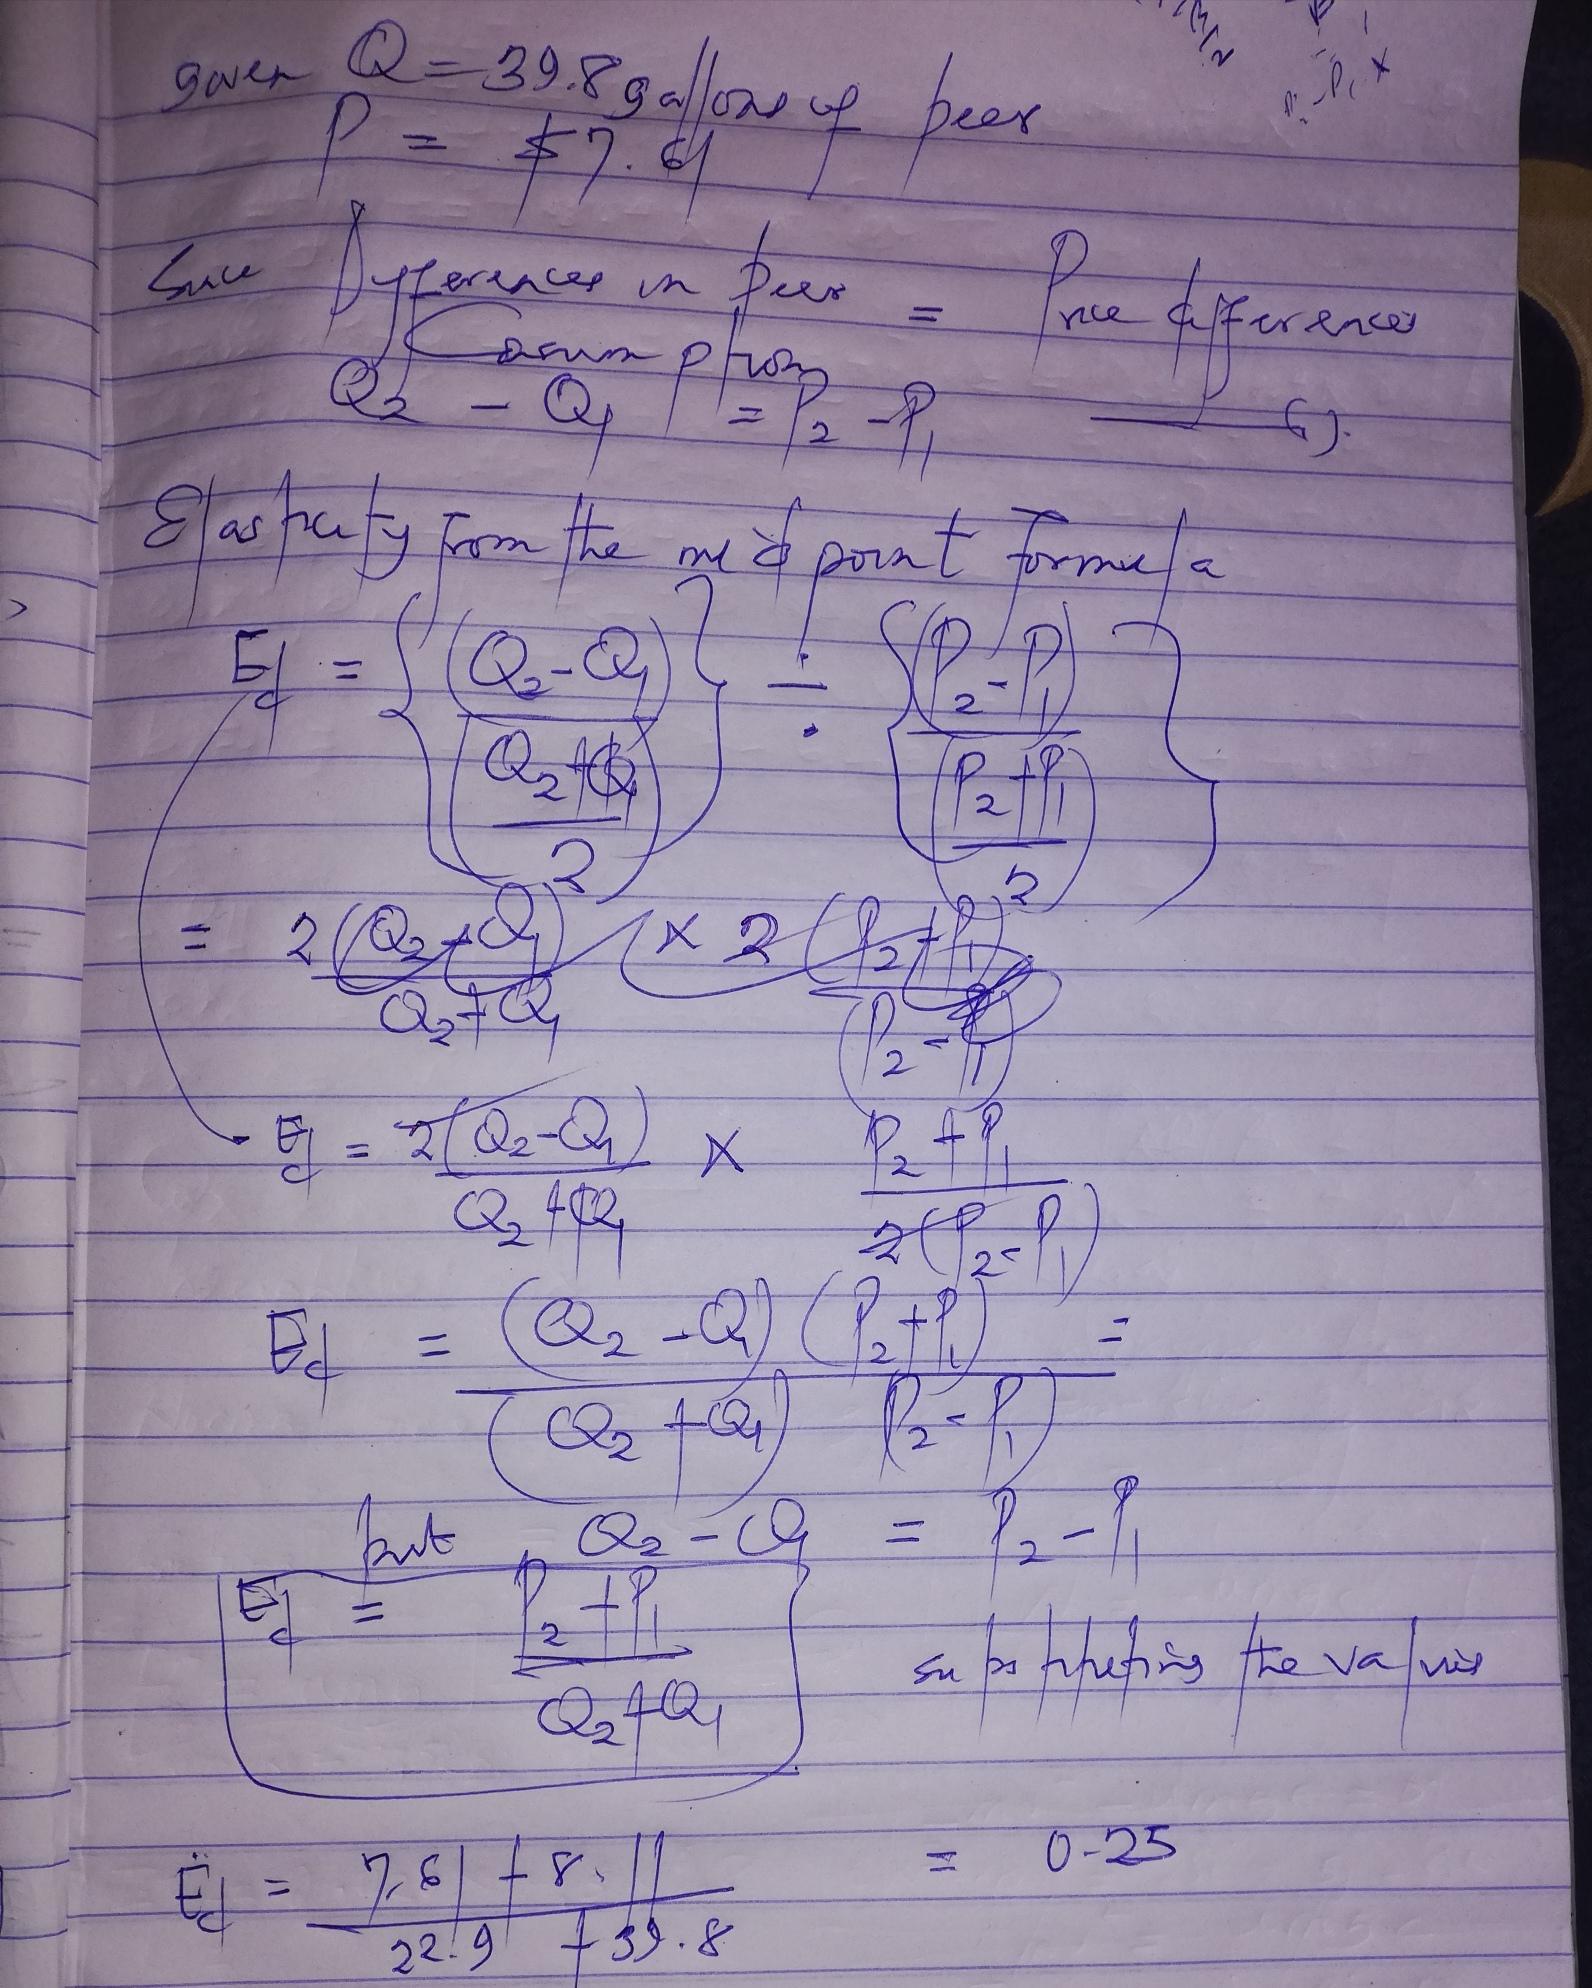 given Q = 39.8 gallons of beer
P = $7.61
Since Differences in beer = Price differences
Consumption
Q2 - Q1 = P2 - P1
Elasticity from the midpoint formula
Ed = {(Q2-Q1) / ((Q2+Q1)/2)} ÷ {(P2-P1) / ((P2+P1)/2)}
Ed = 2(Q2-Q1) / (Q2+Q1) × (P2+P1) / 2(P2-P1)
Ed = (Q2-Q1)(P2+P1) / (Q2+Q1)(P2-P1) =
but Q2 - Q1 = P2 - P1
Ed = (P2+P1) / (Q2+Q1) substituting the values
Ed = (7.61 + 8.11) / (22.9 + 39.8) = 0.25